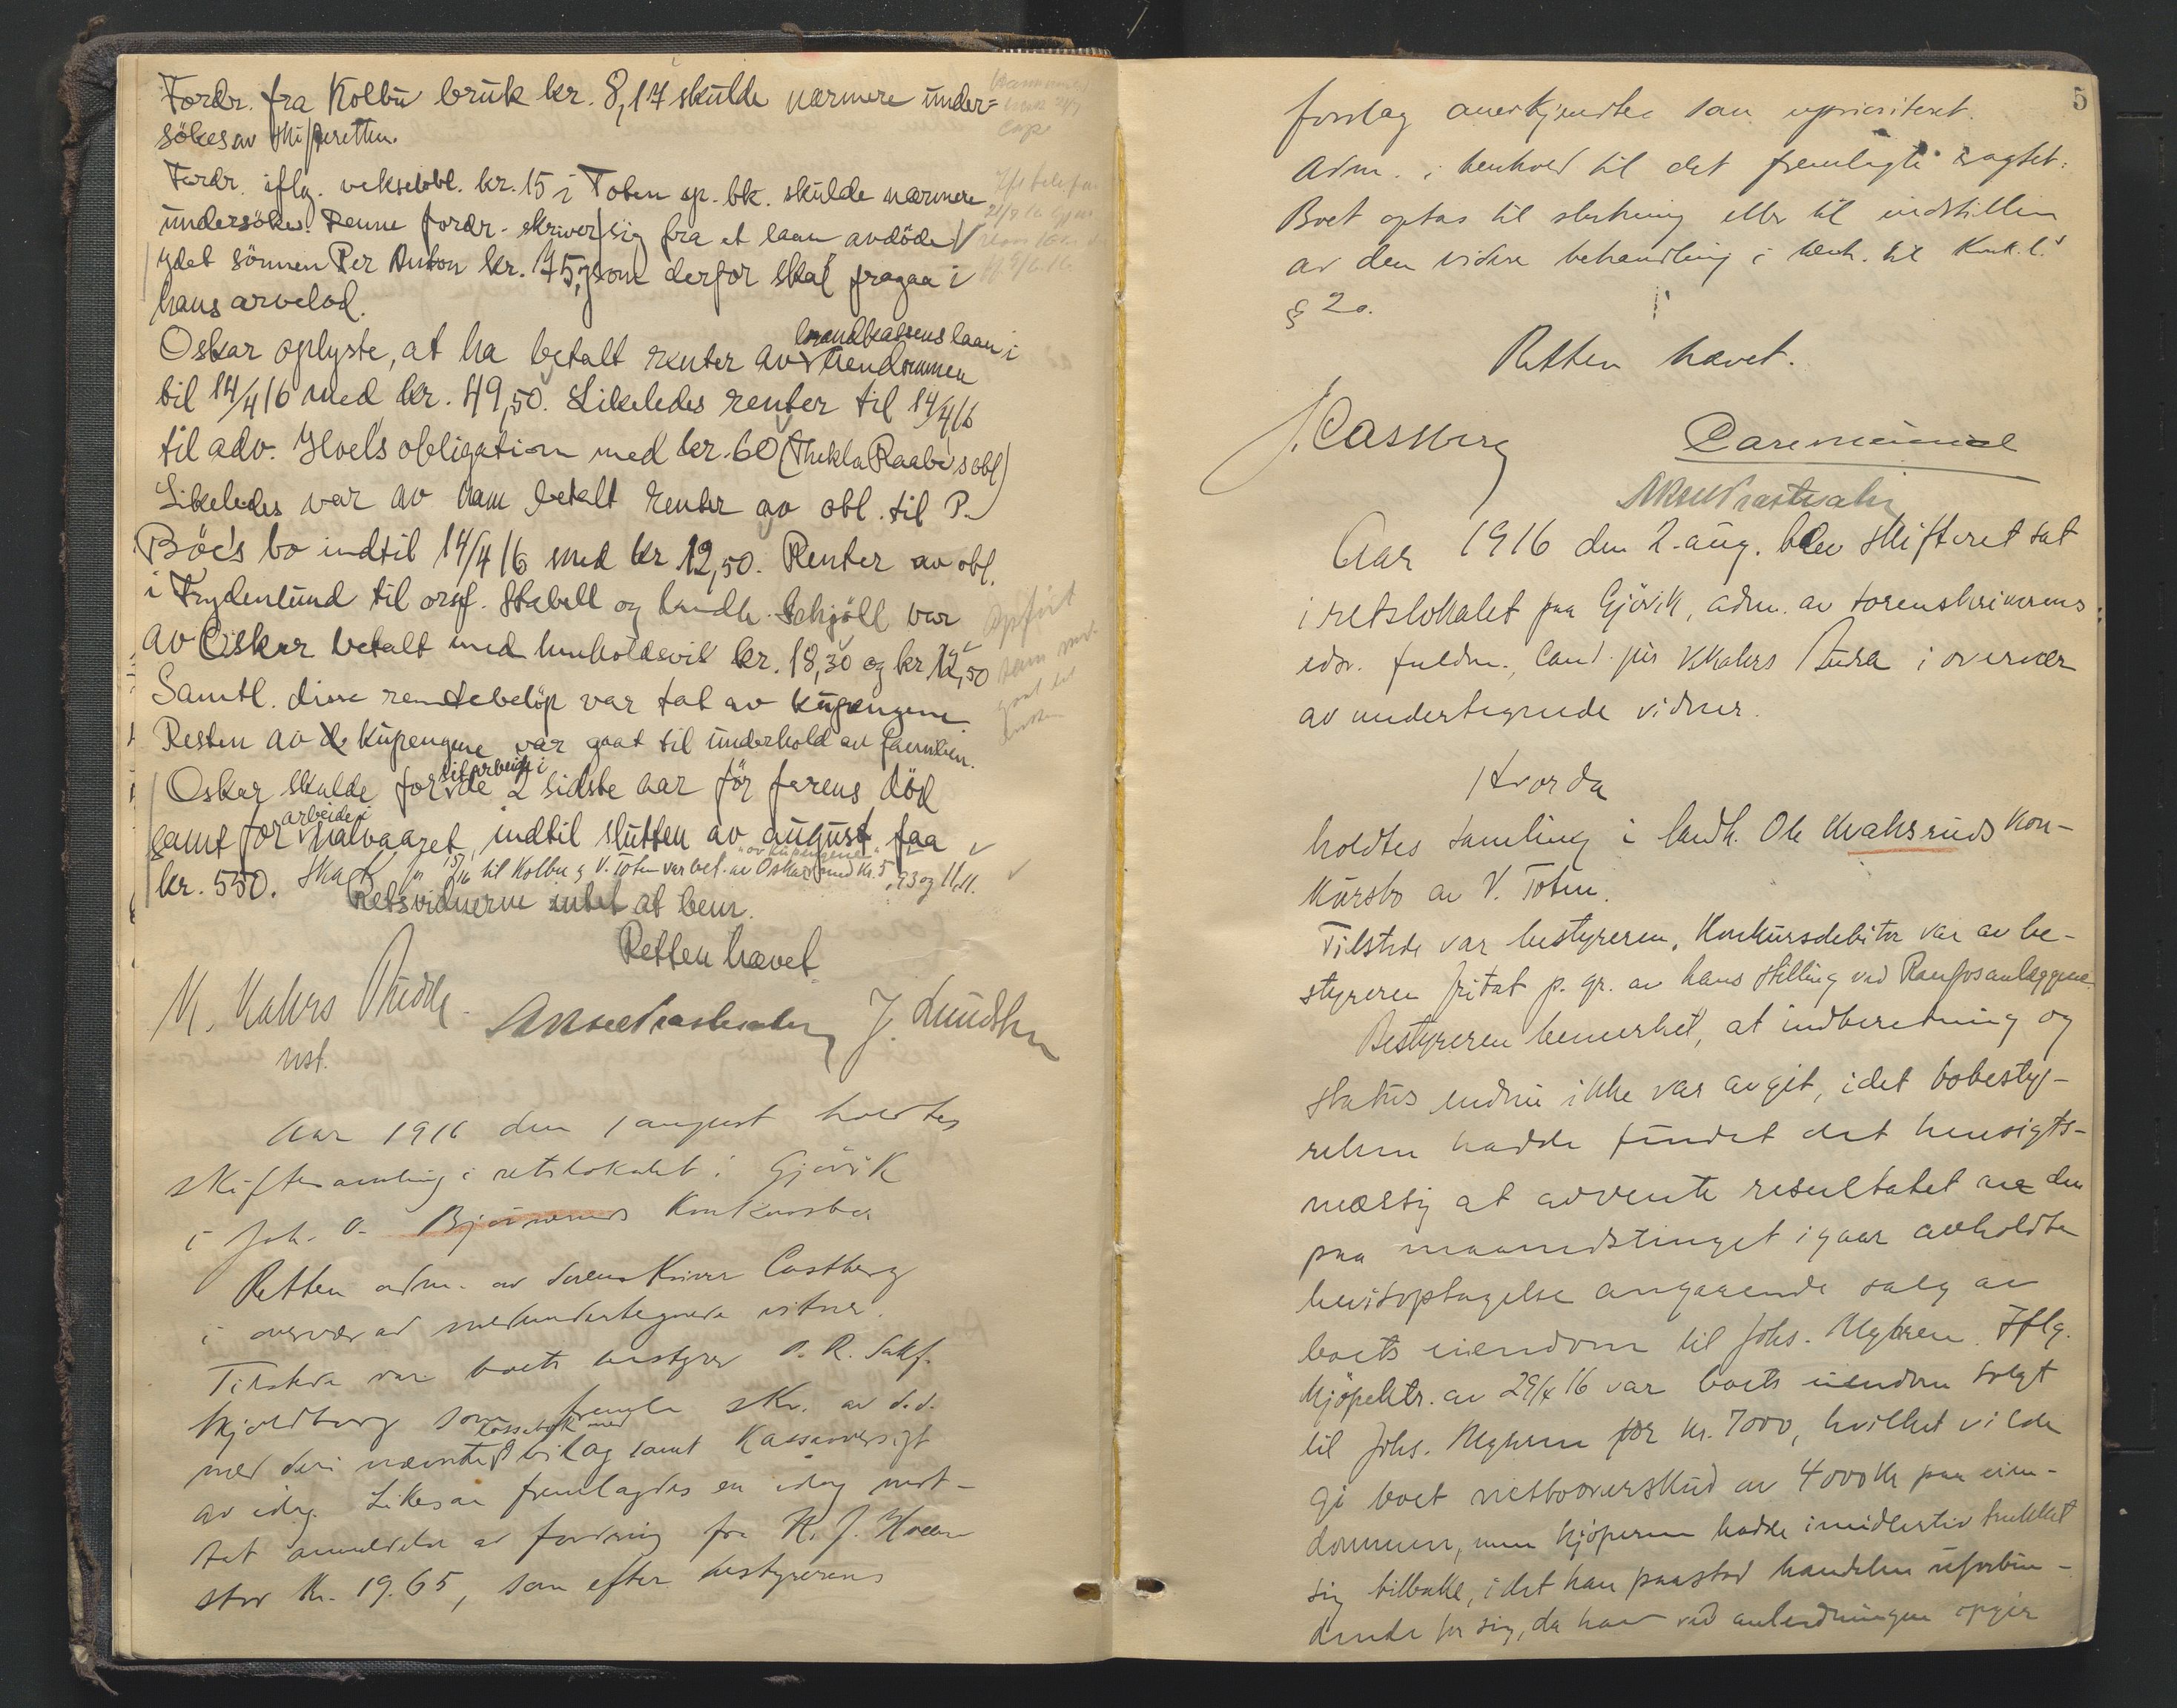 Fordr. fra Kolbu bruk kr. 8,17 skulde nærmere under=
sökes av skifteretten.
Fordr. iflg. vekselobl. kr. 15 i Toten sp. bk. skulde nærmere
undersökes. Denne fordr. skriver sig fra et laan avdöde
ydet sönnen Per Anton kr. 75,- som derfor skal fragaa i
hans arvelod.
Oskar oplyste, at ha betalt renter av brandkassens laan i eiendommen
til 14/4 16 med kr. 49,50. Likeledes renter til 14/4 16
til adv. Hoels obligation med kr. 60 (Thekla Raabe's obl)
Likeledes var av ham betalt renter av obl. til P.
Böe's bo indtil 14/4 16 med kr 12,50. Renter av obl.
i Frydenlund til orsf. Stabell og landh. Schjöll var
av Oskar betalt med henholdsvis kr. 18,30 og kr. 12,50
Samtl. disse rentebelöp var tat av kupengene
Resten av kupengene var gaat til underhold av familien.
Oskar skulde for sit arbeide i de 2 sidste aar för farens död
samt for arbeide i halvaaret, indtil slutten av august faa
kr. 550. Skatt for 15/16 til Kolbu og V. Toten var bet. av Oskar "av kupengene" med kr. 5,93 og 11,11.
Retsvidnerne intet at bem.
Retten hævet
J. Lundsten
nst.
Aar 1916 den 1 august holdtes
skiftesamling i retslokalet i Gjövik
i Joh. O. Bjørneruds Konkursbo
Retten adm. av sorenskriver Castberg
i overvær av medundertegnede vitner.
Tilstede var boets bestyrer O. R. Sakf.
Kjoldborg som fremla skr. av d.d.
med deri nævnte kassabok med bilag samt Kassaoversigt
av idag. Likesaa fremlagdes en idag mot-
tat anmeldelse av fordring fra
stor Kr. 19.65, som efter bestyrerens
5
forslag anerkjendtes som uprioritert.
Adm. i henhold til det fremlagte
Boet optas til slutning eller til indstilling
av den videre behandling i henh. til Konk.l.s
§ 20.
Retten hævet.
J. Castberg
Aar 1916 den 2. aug. blev skifteret sat
i retslokalet paa Gjövik, adm. av sorenskriverens
edsv. fuldm., Cand. jur i overvær
av undertegnede vidner.
Hvorda
holdtes samling i landh. Ole Kvalsruds kon-
kursbo av V. Toten.
Tilstede var bestyreren. Konkursdebitor var av be-
styreren fritat p. gr. av hans stilling ved Raufosanlæggene.
Bestyreren bemerket, at indberetning og
status endnu ikke var avgit, idet bobesty-
relsen hadde fundet det hensigts-
mæssig at avvente resultatet av den
paa maanedstinget igaar avholdte
bevisoptagelse angaaende salg av
boets eiendom til Johs. Myhren. Iflg.
kjöpektr. av 29/4 16 var boets eiendom solgt
til Johs. Myhren for kr. 7000, hvilket vilde
gi boet nettooverskud av 4000 kr paa eien-
dommen, men kjöperen hadde imidlertid trukket
sig tilbake, idet han paastod handelen uforbin-
dende for sig, da han ved